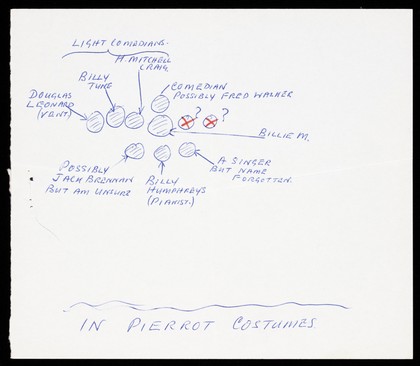 LIGHT COMEDIANS.
H. MITCHELL
CRAIG.
BILLY
TUNE
COMEDIAN
POSSIBLY FRED WALKER
DOUGLAS
LEONARD
(VENT)
? ?
BILLIE M.
POSSIBLY
JACK BRENNAN
BUT AM UNSURE
BILLY
HUMPHREYS
(PIANIST.)
A SINGER
BUT NAME
FORGOTTEN.
IN PIERROT COSTUMES